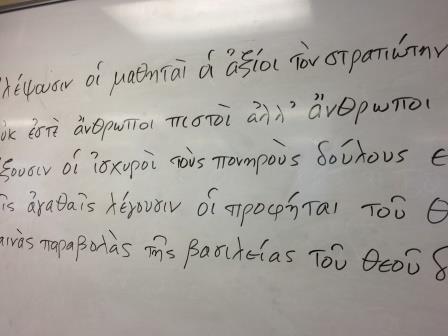 λέψωσιν οἱ μαθηταὶ οἱ ἄξιοι τὸν στρατιώτην
οὐκ ἐστὲ ἄνθρωποι πιστοὶ ἀλλ' ἄνθρωποι
ξουσιν οἱ ἰσχυροὶ τοὺς πονηροὺς δούλους ε
ῖς ἀγαθαῖς λέγουσιν οἱ προφῆται τοῦ θ
αινὰς παραβολὰς τῆς βασιλείας τοῦ θεοῦ δ